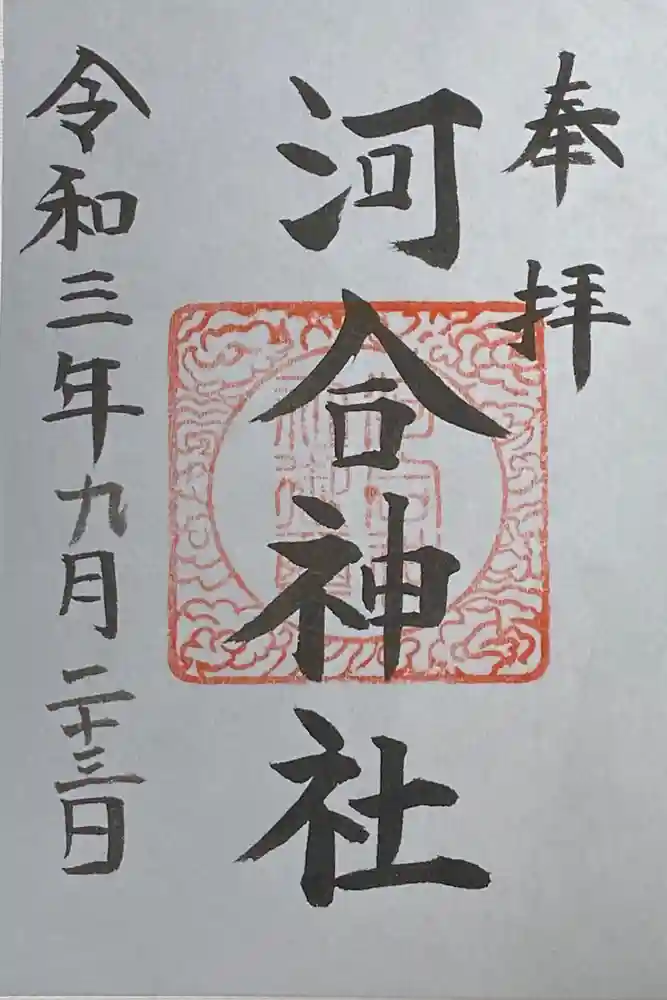 奉拝
河合神社
令和三年九月二十三日